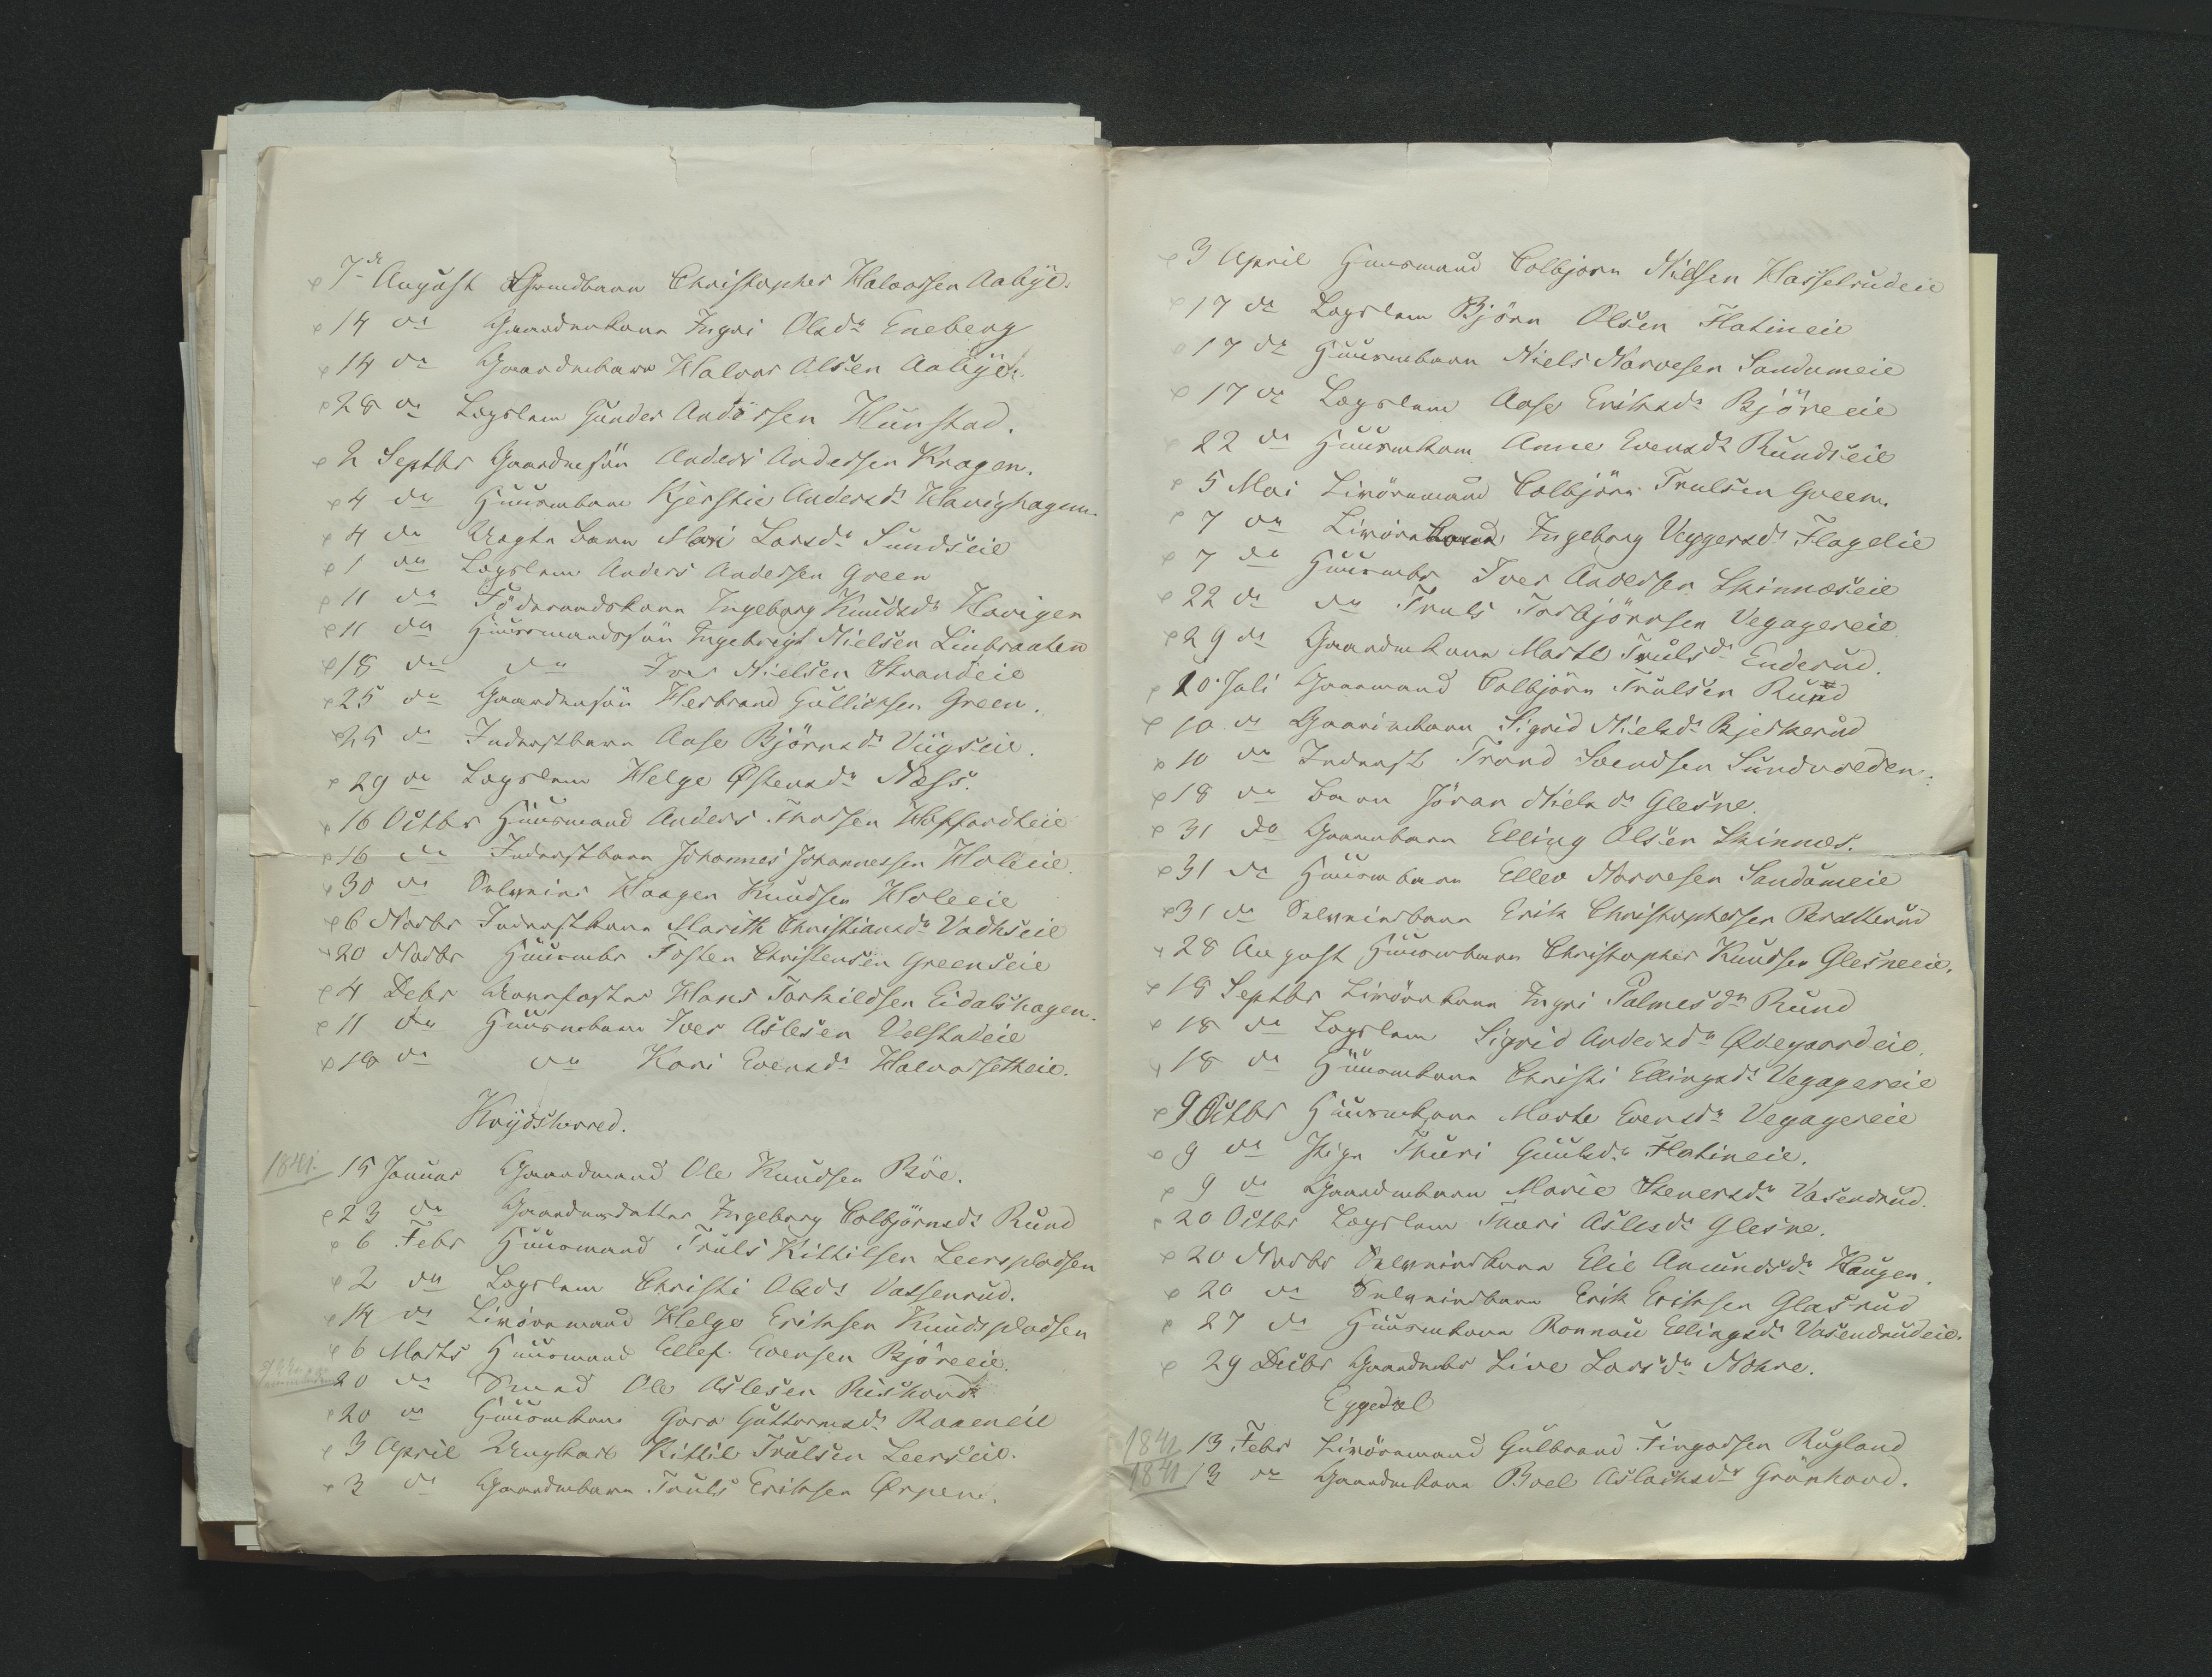 7de August Grundbarn Christopher Halvorsen Aabye.
14 do Gaardmkone Ingri Olsdr Eneberg
14 do Gaardmbarn Halvor Olsen Aabye.
28 do Lægslem Gunder Andersen Hunstad.
2 Septbr Gaardmsøn Anders Andersen Kragen.
4 do Huusmbarn Kjerstie Andersdr Havighagen.
4 do Uægte barn Mari Larsdr Sundseie
1 do Lægslem Anders Andersen Green
11 do Føderaadskone Ingeborg Knudsdr Havigen
11 do Huusmandssøn Ingebrigt Nielsen Linbraaten
18 do do Iver Nielsen Strandeie
25 do Gaardmsøn Herbrand Gullichsen Green.
25 do Inderstbarn Aase Bjørnsdr Viigseie.
29 do Lægslem Helge Østensdr Næss.
16 Octbr Huusmand Anders Thorsen Hoffardteie
16 do Inderstbarn Johannes Johannessen Holeeie.
30 do Selveier Haagen Knudsen Holeeie
6 Novbr Inderstkone Marith Christiansdr Vadhseie
20 Novbr Huusmbr Tosten Christensen Greenseie
4 Debr Christian Hans Torkildsen Eidalshagen.
11 do Huusmbarn Iver Aslesen Velstadeie
18 do do Kari Evensdr Halvorsetheie.
Krydsherred.
1841. 15 Januar Gaardmand Ole Knudsen Bøe.
23 do Gaardmdatter Ingeborg Colbjørnsdr Rund
6 Febr Huusmand Truls Kittilsen Leerspladsen
2 do Lægslem Christi Olsdr Vassenrud.
14 do Livøremand Helge Eriksen Knudspladsen
6 Marts Huusmand Ellef Evensen Bjøreeie.
20 do Smed Ole Aslesen Rushovd
20 do Huusmkone Goro Guttormsdr Roaeneie
3 April Ungkarl Kittil Trulsen Leerseie.
3 do Gaardmbarn Truls Eriksen Ørpen.
3 April Huusmand Colbjørn Nielsen Hasselrudeie
17 do Lægslem Bjørn Olsen Flatineie
17 do Huusmbarn Niels Narvesen Sandumeie
17 do Lægslem Aase Eriksdr Bjøreeie
22 do Huusmkone Anne Evensdr Rundseie
5 Mai Livøremand Colbjørn Trulsen Green
7 do Livørekone Ingeborg Veggersdr Flageeie
7 do Huusmbr Iver Andersen Skinneseie
22 do do Truls Torbjørnsen Vegagereie
29 do Gaardmkone Marthe Trulsdr Enderud.
10 Juli Gaarmand Colbjørn Trulsen Rund
10 do Gaarmkone Sigrid Nielsdr Bjerkerud
10 do Inderst Trond Svendsen Sundvolden.
18 do Barn Jøran Nielsdr Glesne.
31 do Gaarmbarn Elling Olsen Skinnes.
31 do Huusmbarn Ellev Narvesen Sandumeie
31 do Selveierbarn Erik Christophersen Bratterud
28 August Huusmbarn Christopher Knudsen Glesneeie.
18 Septbr Livørekone Ingri Palmesdr Rund
18 do Lægslem Sigrid Andersdr Ødegaardeie.
18 do Huusmkone Christi Ellingsdr Vegagereie
9 Octbr Huusmkone Marte Evensdr Vegagereie
9 do Pige Thuri Guulsdr Flatineie.
9 do Gaardmbarn Marie Stenersdr Vasendrud.
20 Octbr Lægslem Thori Aslesdr Glesne.
20 Novbr Selveierkone Elie Amundsdr Haugen.
20 do Selveierbarn Erik Eriksen Glasrud
27 do Huusmkone Ronnau Ellingsdr Vasendrudeie.
29 Decbr Gaardmbr Live Larsdr Nohre.
Eggedal
1841 13 Febr Livøremand Gulbrand Fingarsen Rugland
1841 13 do Gaardmkone Boel Aslachsdr Grønhovd.